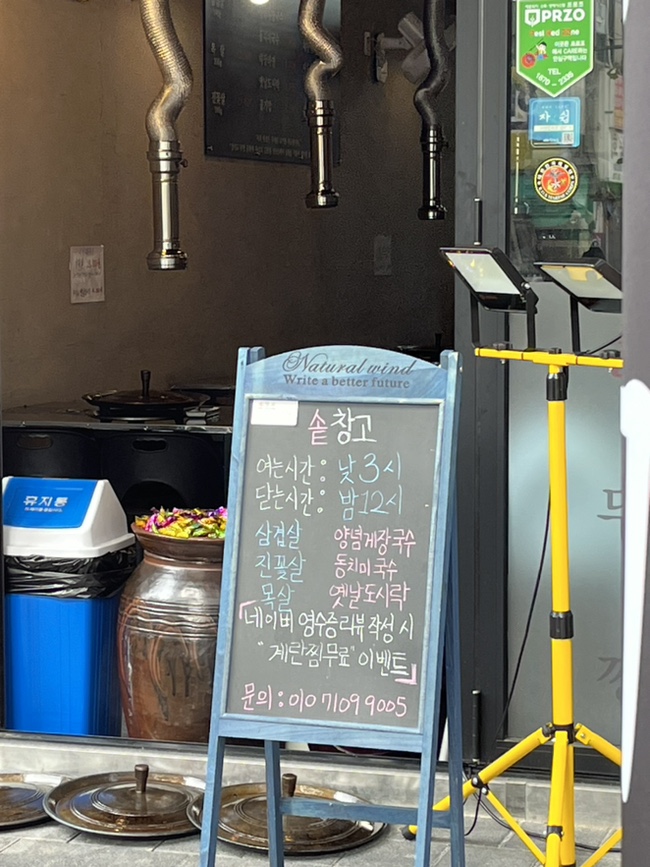 PRZO
TEL
1670 - 2326
Natural wind
Write a better future
솥 창고
여는시간 : 낮 3시
닫는시간 : 밤 12시
삼겹살 양념게장국수
진꽃살 동치미국수
목살 옛날도시락
「네이버 영수증리뷰 작성 시
"계란찜무료" 이벤트」
문의 : 010 7109 9005
휴지통